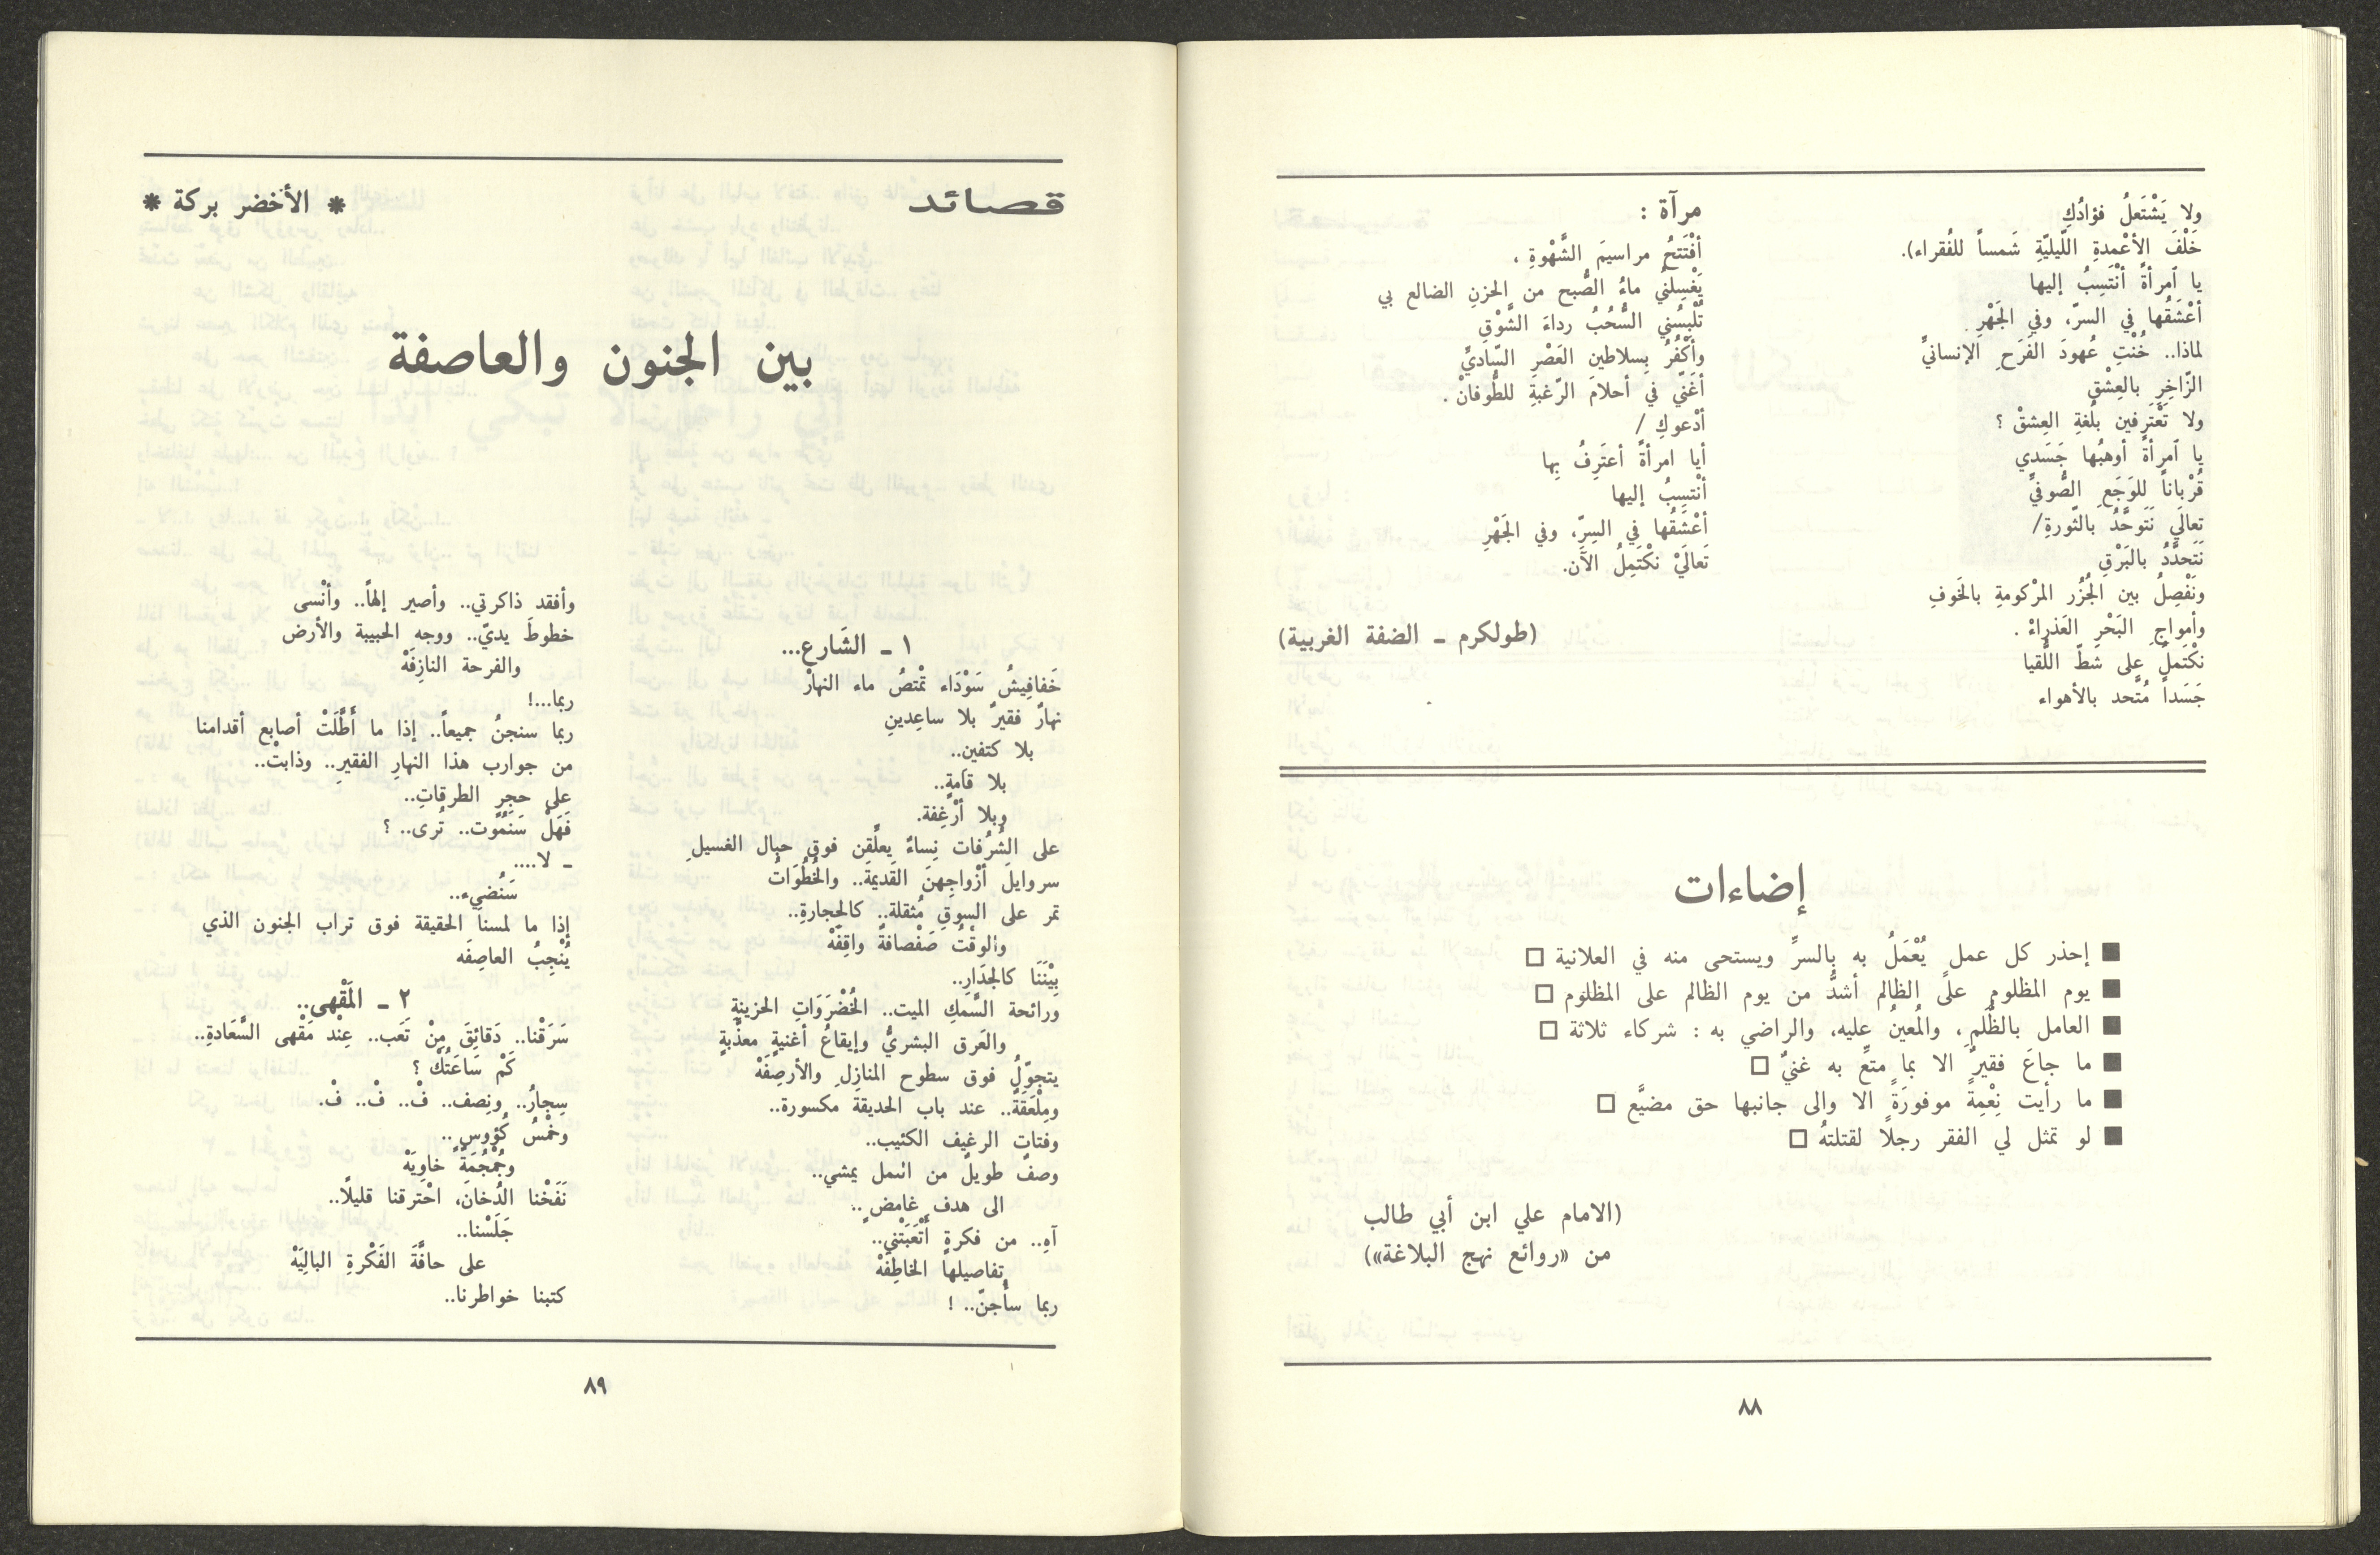 ولا يَشْتَعلُ فؤادُكِ
خَلْفَ الأعْمدةِ اللّيليّةِ شَمساً للفُقراء).
يا آمرأةً أنْتَسِبُ إليها
أعْشَقُها في السرّ، وفي الجَهْرِ
لماذا.. خُنْتِ عُهودَ الفَرَحِ الإنسانيِّ
الزّاخِرِ بالعِشْقِ
ولا تَعْتَرفين بلُغةِ العِشقْ ؟
يا آمرأةً أوهبُها جَسَدي
قُرْباناً للوَجَعِ الصُّوفيِّ
تعالَي نَتَوحَّدُ بالثّورةِ/
نَتَحدَّدُ بالبَرْقِ
ونَفْصِلُ بين الجُزُر المرْكومةِ بالخَوفِ
وأمواجِ البَحْرِ العَذراءْ .
نكْتَملُ على شَطّ اللُّقيا
جَسَداً مُتَّحد بالأهواء
مرآة :
أفْتَتحُ مراسيمَ الشَّهْوةِ ،
يَغْسِلنُي ماءُ الصُّبح من الحزنِ الضالع بي
تَلْبسُني السُّحُبُ رداءَ الشَّوْقِ
وأكْفُرُ بِسلاطين العَصْرِ السّاديِّ
أغَنّي في أحلامَ الرّغبةِ للطُّوفانْ .
أدْعوكِ /
أيا امرأةً أعتَرِفُ بِها
أنْتسِبُ إليها
أعْشَقُها في السِرّ، وفي الجَهْرِ
تَعالَيْ نكْتَمِلُ الآن.
(طولكرم ـ الضفة الغربية)
إضاءات
■ إحذر كل عمل يُعْمَلُ به بالسرِّ ويستحى منه في العلانية □
■ يوم المظلوم على الظالم أشدُّ من يوم الظالم على المظلوم □
■ العامل بالظُّلمِ، والمُعينُ عليه، والراضي به : شركاء ثلاثة □
■ ما جاعَ فقيرٌ الا بما متِّع به غنيٌ □
■ ما رأيت نِعْمِةً موفورَةً الا والى جانبها حق مضيَّع □
■ لو تمثل لي الفقر رجلاً لقتلتهُ □
(الامام علي ابن أبي طالب
من «روائع نهج البلاغة»)
٨٨
قصائد
* الأخضر بركة *
بين الجنون والعاصفة
١ ـ الشَارع...
خَفافِيشُ سَوْدَاء تمْتصُ ماء النهارْ
نهارٌ فقيرٌ بلا ساعِدينِ
بلا كتفين..
بلا قامةٍ..
وبلا أرْغِفة.
على الشُرُفات نِساءٌ يعلّقن فوق حبال الغسيلِ
سروايلَ أزْواجِهنَ القَديمَة.. والخُطُوَاتُ
تمر على السوقِ مُثقلة.. كالحِجارةِ..
والوقْتُ صَفْصافةٌ واقِفَهْ
بيْننَا كالجدَارِ..
ورائحة السَّمكِ الميت.. الخُضْرَوَاتِ الحزينةِ
والعَرق البشريُّ وإيقاعُ أغنيةٍ معذّبةٍ
يتجوّلُ فوق سطوح المنازِلِ والأرصِفَهْ
ومِلْعَقَةً.. عند باب الحديقة مكسورة..
وفتات الرغيف الكئيب..
وصفٌ طويلٌ من النمل يمشي..
الى هدفٍ غامضٍ..
آهِ.. من فكرةٍ أَتْعَبَتْني..
تفاصيلها الخاطِفَهْ
ربما سأجنّ.. !
وأفقد ذاكرتي.. وأصير إلهاً.. وأنْسى
خطوطَ يديّ.. ووجه الحبيبة والأرض
والفرحة النازِفَهْ
ربما...!
ربما سنجنُ جميعاً.. إذا ما أَطَّلَتْ أصابع أقدامنا
من جوارب هذا النهارِ الفقيرِ.. وذابتْ..
على حجرِ الطرقاتِ..
فَهَلْ سَنَمُوت.. تُرى.. ؟
ـ لا....
سَنُضيء..
إذا ما لمسنا الحقيقة فوق تراب الجنون الذي
يُنْجِبُ العاصِفَه
٢ ـ المَقْهى..
سَرَقْنا.. دَقائِقَ مِنْ تَعَب.. عِنْد مَقْهى السَّعَادةِ..
كَمْ سَاعَتُكْ ؟
سِجارُ.. ونِصف.. فْ.. فْ.. فْ.
وخمْسُ كُؤوسٍ..
وجُمْجُمَةٌ خاوِيَهْ
نَفَخْنا الدُخانَ، احْترقنا قليلاً..
جَلَسْنا..
على حافَّةَ الفَكْرةِ البالِيَهْ
كتبنا خواطرنا..
٨٩